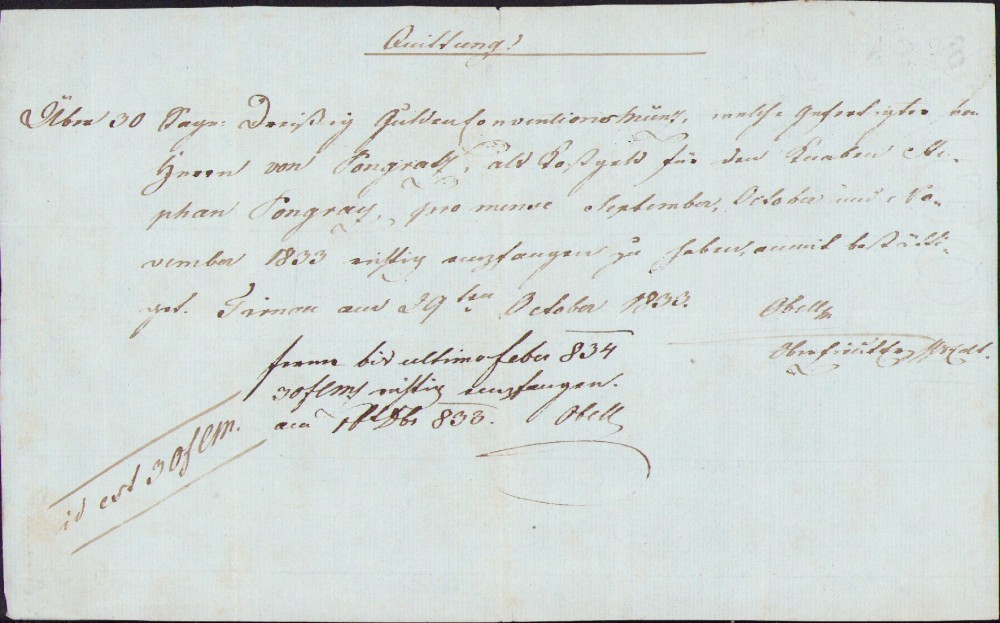 Quittung!
Über 30 Sage: Dreißig Gulden Conventions Münz, welche Gefertigter von
Herrn von Pongratz, als Kostgeld für den Knaben Ste-
phan Pongraz, pro mense September, October und No-
vember 1833 richtig empfangen zu haben, anmit bestätti-
get. Tirnau am 29ten October 1833.
Obell
ferner bis ultimo Feber 834
30 f CMz richtig empfangen.
am Xbr 833. Obell
id est 30 f CM.